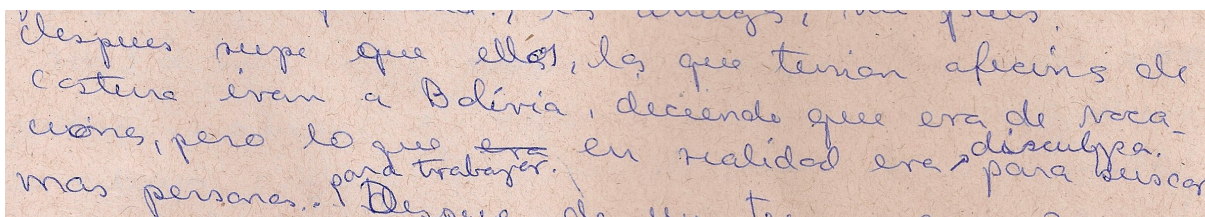 amigos, mi país.
despues supe que ellos, los que tenian oficina de
costura ivan a Bolívia, deciendo que era de vaca_
ciones, pero lo que en realidad era disculpa.
para buscar
mas personas.. para trabajar. Despues de